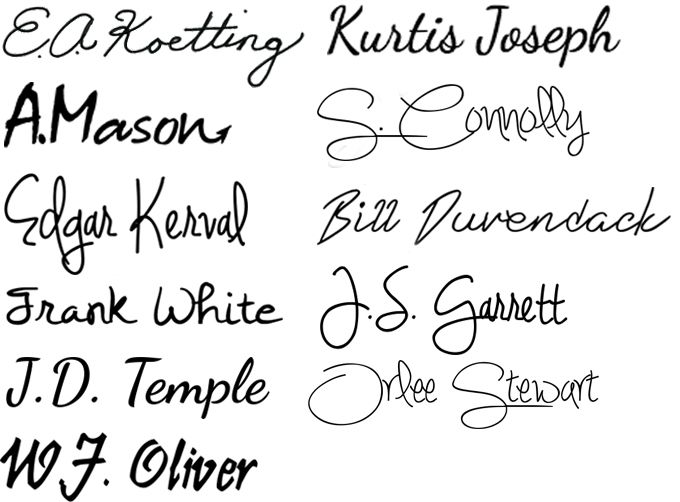 E.A. Koetting
Kurtis Joseph
A.Mason
S. Connolly
Edgar Kerval
Bill Duvendack
Frank White
J.S. Garrett
J.D. Temple
Orlee Stewart
W.J. Oliver